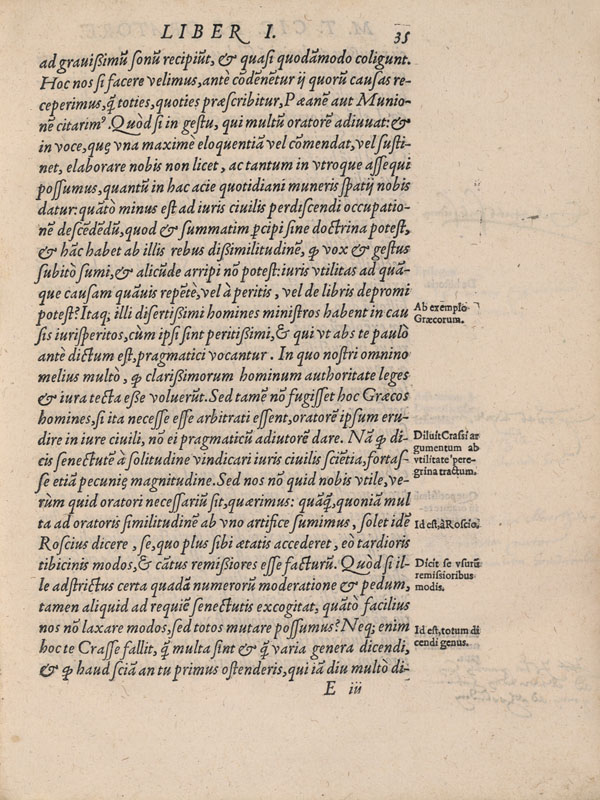 LIBER I. 35
ad grauißimũ sonũ recipiũt, & quasi quodãmodo coligunt.
Hoc nos si facere velimus, antè cõdẽnẽtur ij quorũ causas re-
ceperimus, q̃ toties, quoties præscribitur, Pæanẽ aut Munio-
nẽ citarimꝰ. Quòd si in gestu, qui multũ oratorẽ adiuuat: &
in voce, quę vna maximè eloquentiã vel cõmendat, vel susti-
net, elaborare nobis non licet, ac tantum in vtroque assequi
possumus, quantũ in hac acie quotidiani muneris spatij nobis
datur: quãtò minus est ad iuris ciuilis perdiscendi occupatio-
nẽ descẽdẽdũ, quod & summatim ꝑcipi sine doctrina potest,
& hãc habet ab illis rebus dißimilitudinẽ, ꝙ vox & gestus
subitò sumi, & alicũde arripi nõ potest: iuris vtilitas ad quã-
que causam quãuis repẽtè, vel à peritis, vel de libris depromi
potest? Itaq; illi disertißimi homines ministros habent in cau
sis iurisperitos, cùm ipsi sint peritißimi, & qui vt abs te paulò
antè dictum est, pragmatici vocantur. In quo nostri omnino
melius multò, ꝙ clarißimorum hominum authoritate leges
& iura tecta eße voluerũt. Sed tamẽ nõ fugisset hoc Græcos
homines, si ita necesse esse arbitrati essent, oratorẽ ipsum eru-
dire in iure ciuili, nõ ei pragmaticũ adiutorẽ dare. Nã ꝙ di-
cis senectutẽ à solitudine vindicari iuris ciuilis sciẽtia, fortas-
se etiã pecunię magnitudine. Sed nos nõ quid nobis vtile, ve-
rùm quid oratori necessariũ sit, quærimus: quãq̃, quoniã mul
ta ad oratoris similitudinẽ ab vno artifice sumimus, solet idẽ
Roscius dicere, se, quo plus sibi ætatis accederet, eò tardiores
tibicinis modos, & cãtus remißiores esse facturũ. Quòd si il-
le adstrictus certa quadã numerorũ moderatione & pedum,
tamen aliquid ad requiẽ senectutis excogitat, quãtò facilius
nos nõ laxare modos, sed totos mutare possumus? Neq; enim
hoc te Crasse fallit, q̃ multa sint & q̃ varia genera dicendi,
& ꝙ haud sciã an tu primus ostenderis, qui iã diu multò di-
E iij
Ab exemplo
Græcorum.
Diluit Crassi ar
gumentum ab
vtilitate pere-
grina tractum.
Id est, à Roscio.
Dicit se vsurũ
remissioribus
modis.
Id est, totum di
cendi genus.